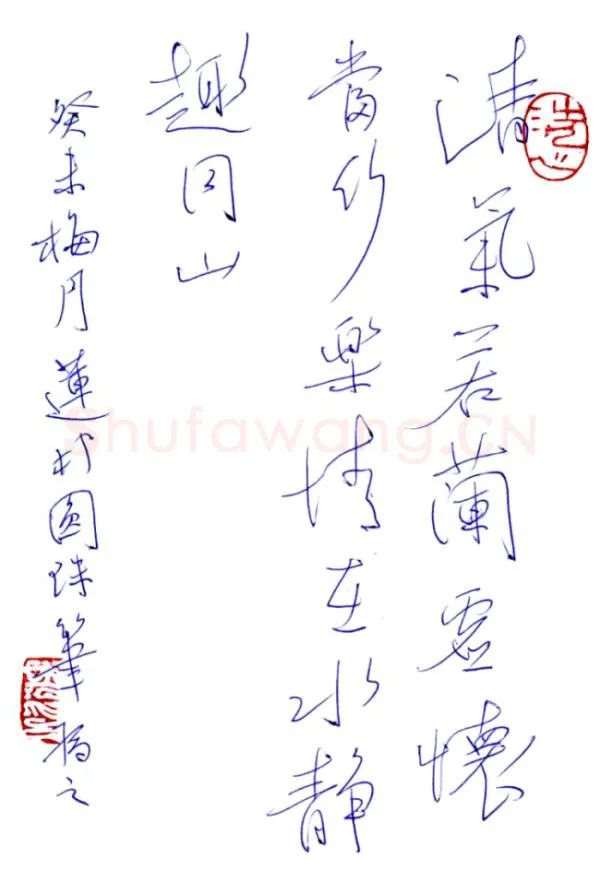 清氣若蘭虛懷
當竹樂情在水靜
趣同山
癸未梅月蓮村圓珠筆
Shufawang.CN